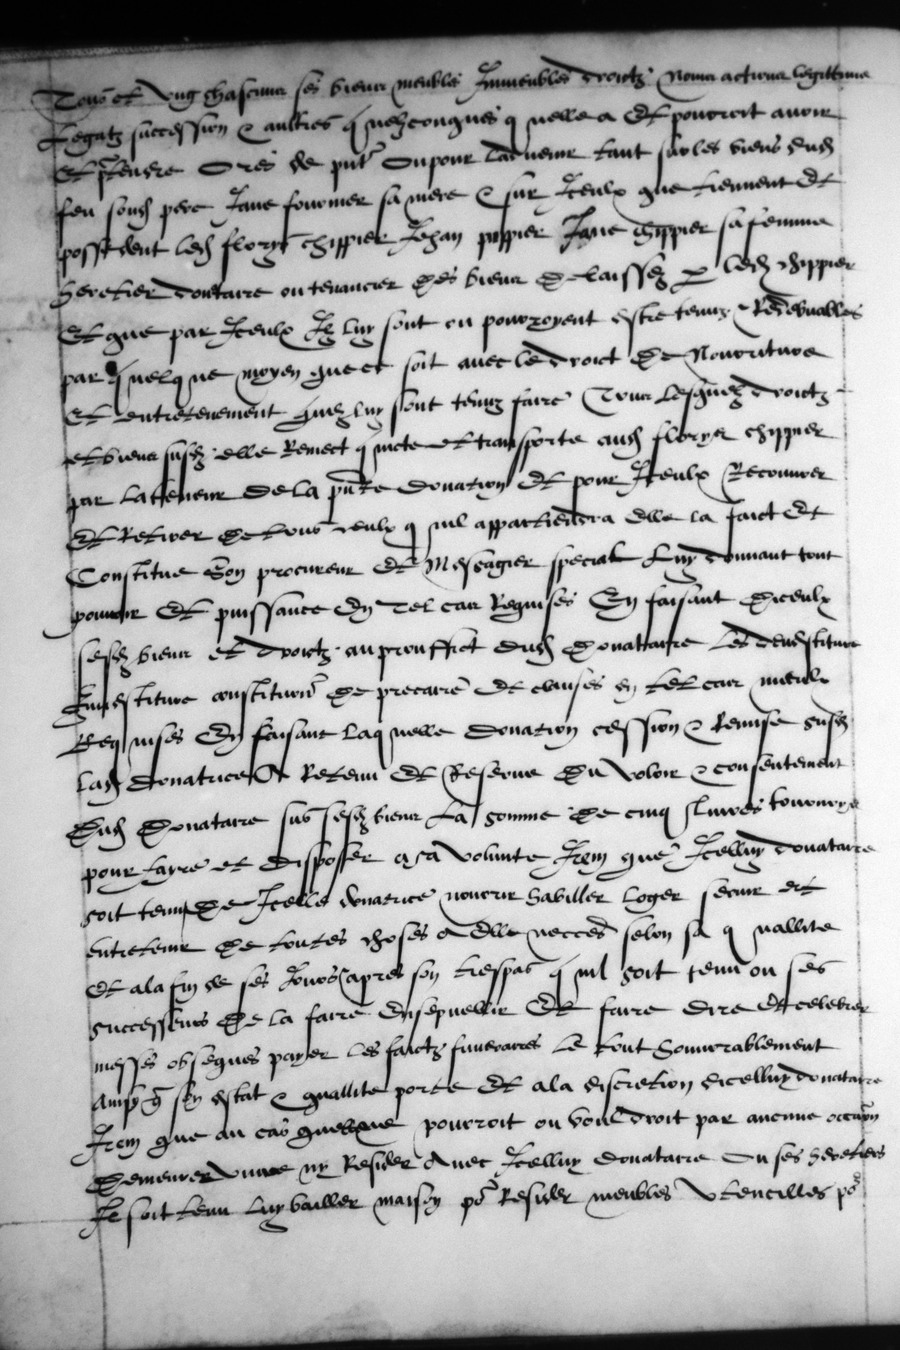 Tous et ung chascuns ses biens meubles Immeubles droictz noms actions legittime
Legatz succession & aultres q̃ uelzconques q uelle a Et pourroit auoir
Et p̃tendre Ores de pñt Ou pour laduenir tant sur les biens dud
feu sond pere Jane fournier sa mere & sur Iceulx que tiennent Et
possedent led floryt chippier Jehan pippier Jane chippier sa femme
heretier donataire ou tenancier des biens delaissez p led chippier
Et que par Iceulx Il luy sont ou pourroyent estre tenuz & Redebuables
par q̃uelq ue moyen que ce soit auec le droict de Nourriture
Et entretenement quez luy sont tenuz faire Tous Lesquelz droictz
et biens susd elle Remect q uicte et transporte aud floryt chippier
par la teneur de la pñte donation Et pour Iceulx Recouurer
Et Retirer de tous ceulx q uil appartiendra elle la faict Et
Constitue Son procureur Et Messagier special Luy donnant tout
pouuoir Et puissance En tel cas Requises En faisant diceulx
sesd biens et droictz au prouffict dud Donataire Les deuestiture
Inuestiture constitution de precaire Et clauses en tel cas mieulx
Req uises En faisant laq uelle donation cession & Remise susd
lad donatrice A Retenu Et Reserue du voloir & consentement
Dud Donataire sus sesd biens La somme de cinq liures tournoys
pour fayre et disposer a sa volunte Item que Icelluy donataire
soit tenu de Icelle donatrice nourrir habiller loger secur Et
entretenir de toutes choses a Elle necces̃ selon sa q uallite
Et a la fin de ses Jours apres son trespas q uil soit tenu ou ses
successeurs de la faire Ensepuellir Et faire dire Et celebrer
messes obseques payer les faictz funeraires le tout honnorablement
Ainsy q̃ son estat & quallite porte Et a la discretion dicelluy donataire
Item que au cas quelle ne pourroit ou vouldroit par aucune occasion
Demeurer viure ny Resider Auec Icelluy donataire Ou ses heretiers
Il soit tenu luy bailler maison po͛ Resider meubles vtencilles po͛